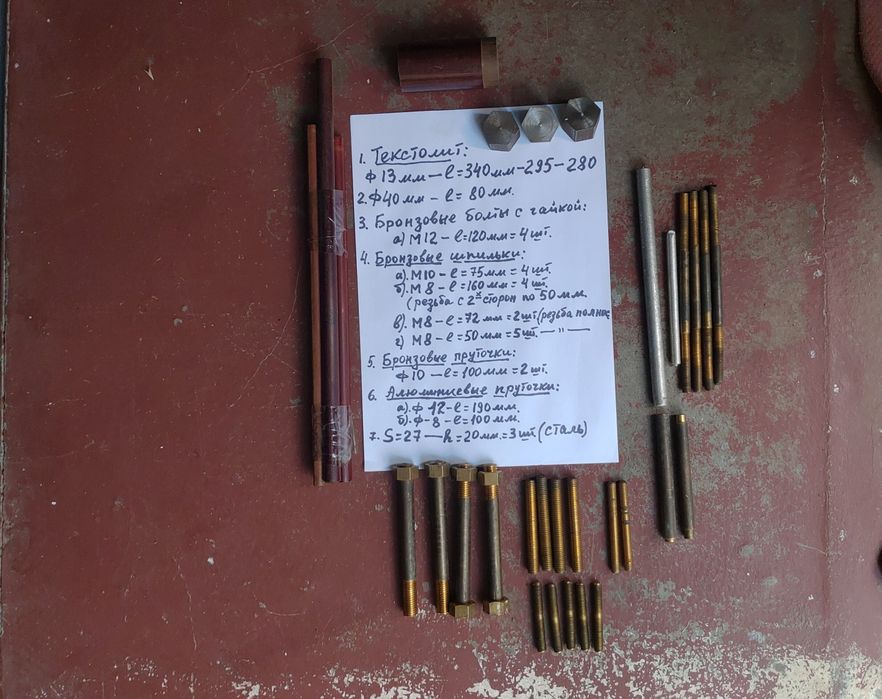 1. Текстолит:
ф 13мм — l = 340мм – 295 – 280
2. ф40мм – l = 80мм.
3. Бронзовые болты с гайкой:
а) М12 – l = 120мм = 4шт.
4. Бронзовые шпильки:
а). М10 – l = 75мм = 4шт.
б). М8 – l = 160мм = 4шт.
(резьба с 2х сторон по 50мм.
в). М8 – l = 72мм = 2шт (резьба полнос
г). М8 – l = 50мм = 5шт. — " —
5. Бронзовые пруточки:
ф10 – l = 100мм = 2шт.
6. Алюминиевые пруточки:
а). ф 12 – l = 190мм.
б). ф – 8 – l = 100мм.
7. S = 27 — h = 20мм. = 3шт (сталь)